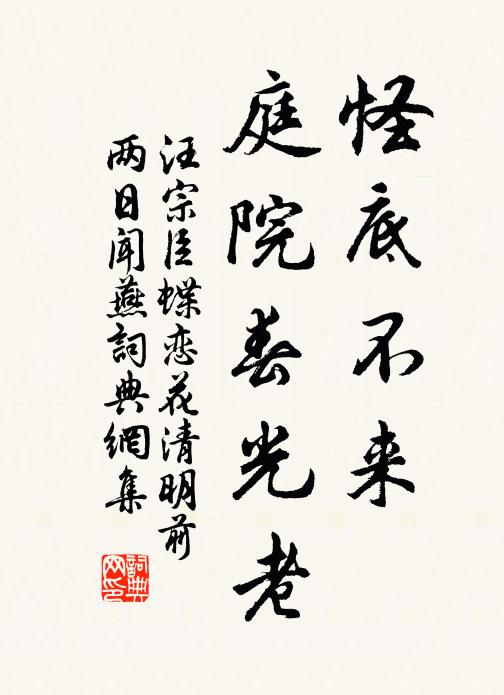 怪底不来
庭院春光老
汪宗臣蝶恋花清明前
两日闻燕词典網集
詞典网印